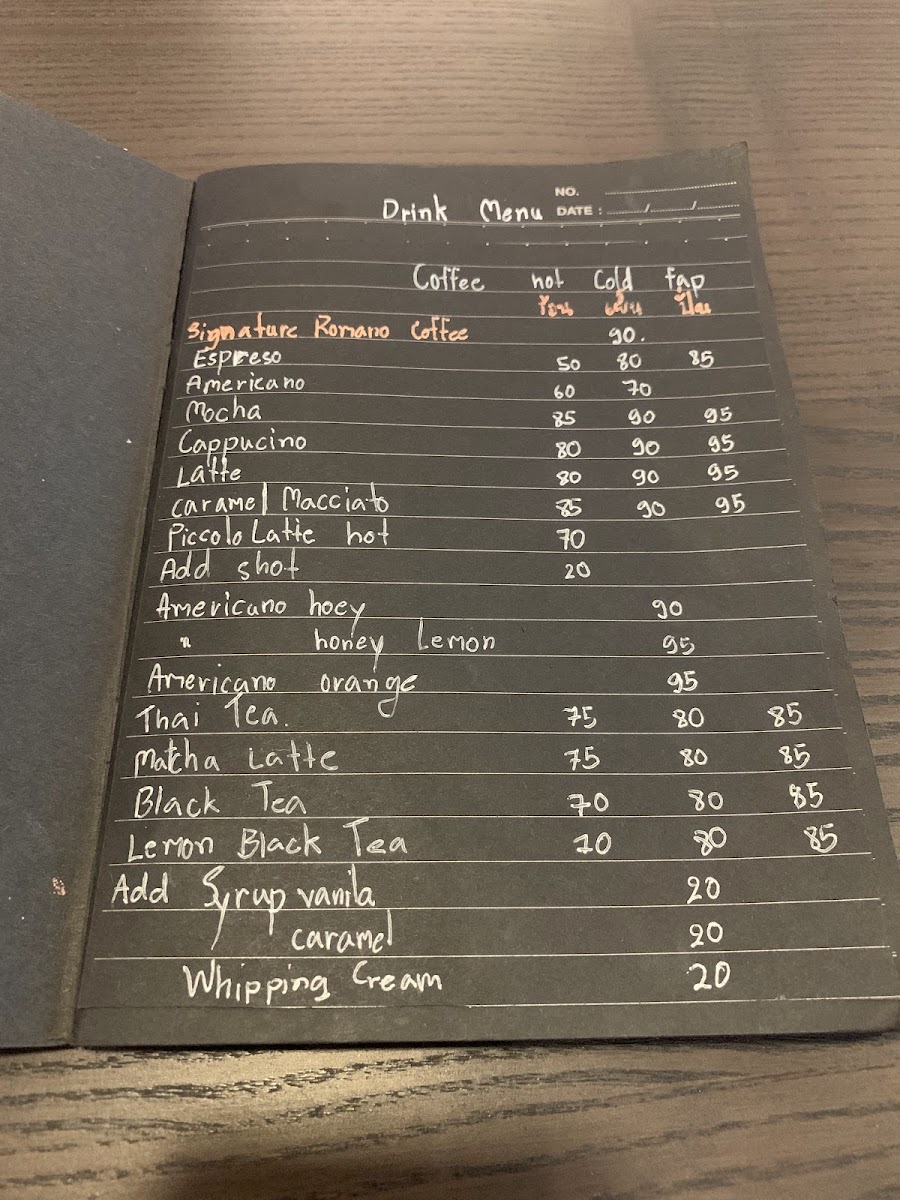 NO.
Drink Menu DATE : / /
Coffee hot Cold fap
ร้อน เย็น ปั่น
Signature Romano Coffee 90.
Espreso 50 80 85
Americano 60 70
Mocha 85 90 95
Cappucino 80 90 95
Latte 80 90 95
caramel Macciato 85 90 95
Piccolo Latte hot 70
Add shot 20
Americano hoey 90
" honey Lemon 95
Americano orange 95
Thai Tea. 75 80 85
Matcha Latte 75 80 85
Black Tea 70 80 85
Lemon Black Tea 70 80 85
Add Syrup vanila 20
caramel 20
Whipping Cream 20